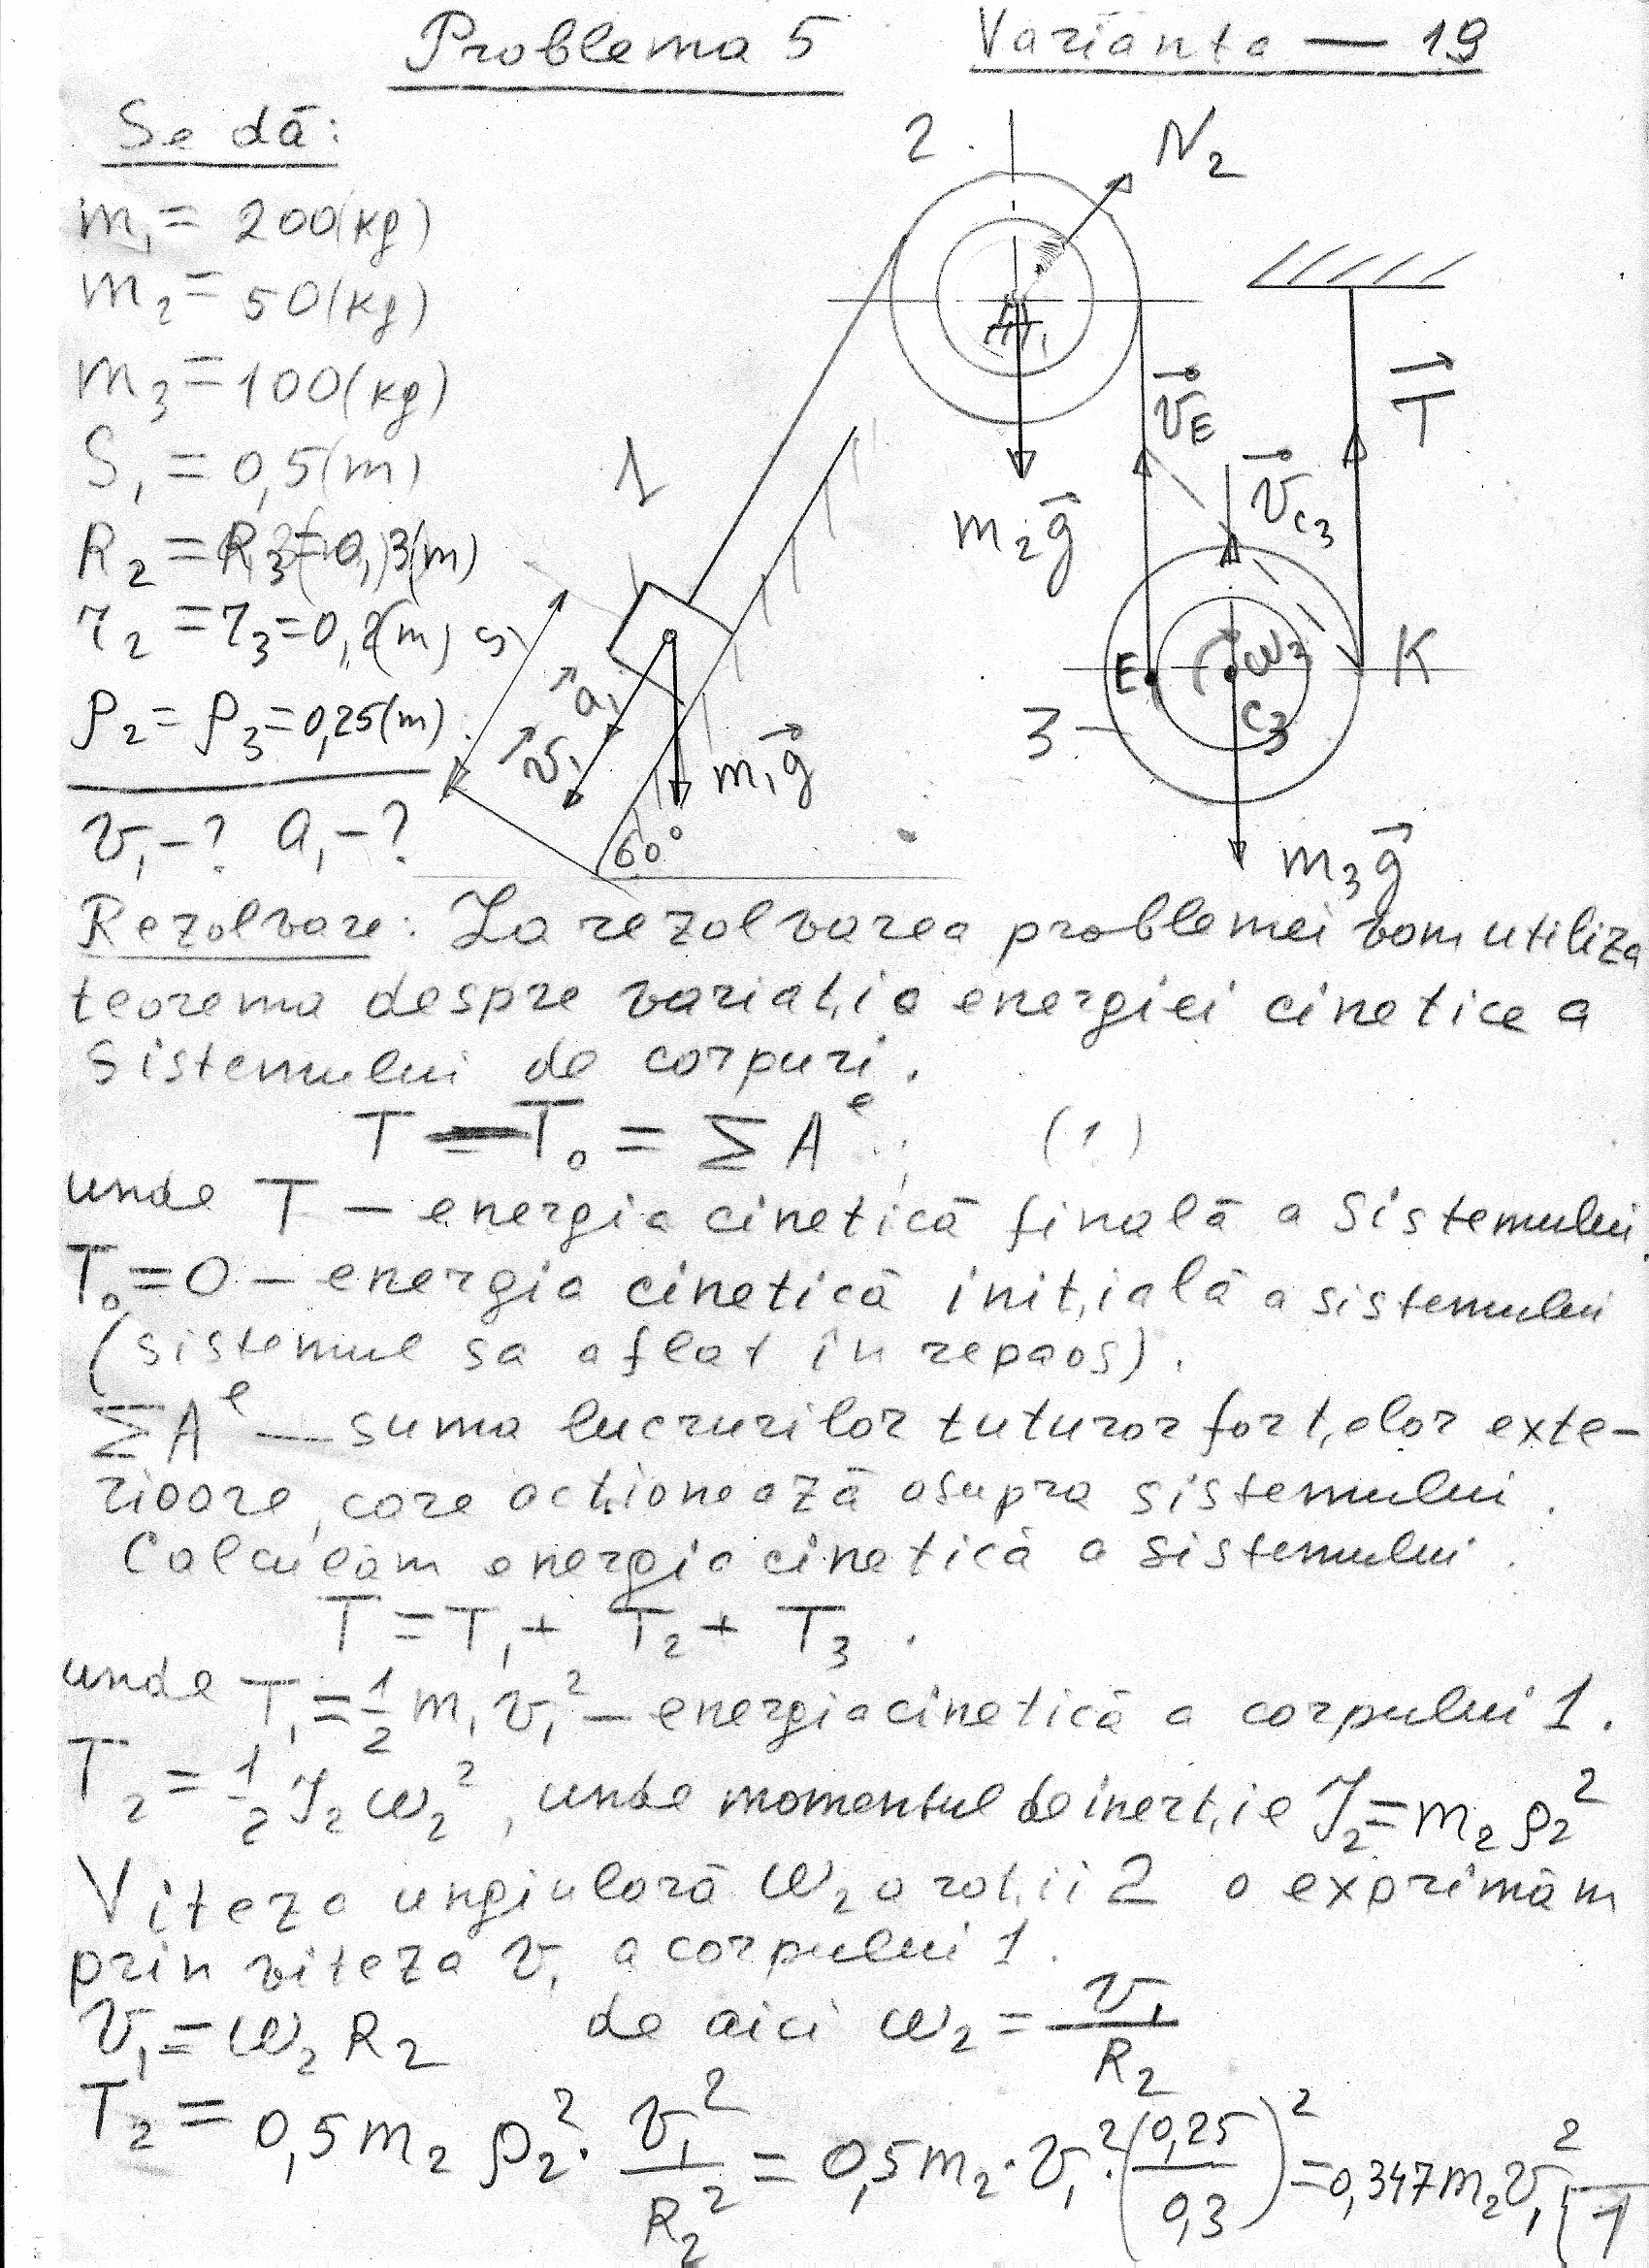 Problema 5 Varianta — 19
Se dă:
m₁ = 200(kg)
m₂ = 50(kg)
m₃ = 100(kg)
S₁ = 0,5(m)
R₂ = R₃ = 0,3(m)
r₂ = r₃ = 0,2(m)
ρ₂ = ρ₃ = 0,25(m)
v₁ - ? a₁ - ?
2
N₂
m₂g⃗
v⃗E
v⃗C₃
T⃗
1
S₁
a⃗₁
v⃗₁
m₁g⃗
60°
E
ω₃
K
C₃
3
m₃g⃗
Rezolvare: La rezolvarea problemei vom utiliza
teorema despre variat,ia energiei cinetice a
sistemului de corpuri.
T — T₀ = ΣAᵉ; (1)
unde T — energia cinetică finală a sistemului
T₀ = 0 — energia cinetică init,ială a sistemului
(sistemul sa aflat în repaos).
ΣAᵉ — suma lucrurilor tuturor fort,elor exte-
rioare, care act,ionează asupra sistemului.
Calculăm energia cinetică a sistemului.
T = T₁ + T₂ + T₃.
unde T₁ = 1/2 m₁v₁² — energia cinetică a corpului 1.
T₂ = 1/2 J₂ω₂², unde momentul de inert,ie J₂ = m₂ρ₂²
Viteza unghiulară ω₂ a rot,ii 2 o exprimăm
prin viteza v₁ a corpului 1.
v₁ = ω₂R₂ de aici ω₂ = v₁/R₂
T₂ = 0,5m₂ρ₂² · v₁²/R₂² = 0,5m₂·v₁²·(0,25/0,3)² = 0,347m₂v₁²
1